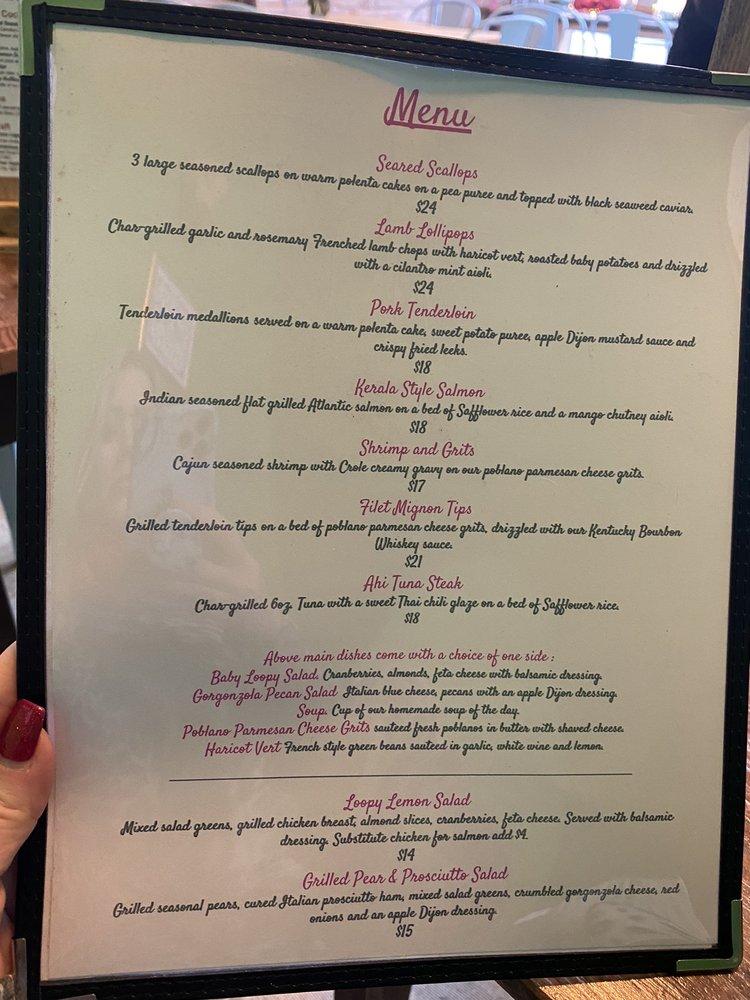 Menu
Seared Scallops
3 large seasoned scallops on warm polenta cakes on a pea puree and topped with black seaweed caviar.
$24
Lamb Lollipops
Char-grilled garlic and rosemary Frenched lamb chops with haricot vert, roasted baby potatoes and drizzled
with a cilantro mint aioli.
$24
Pork Tenderloin
Tenderloin medallions served on a warm polenta cake, sweet potato puree, apple Dijon mustard sauce and
crispy fried leeks.
$18
Kerala Style Salmon
Indian seasoned flat grilled Atlantic salmon on a bed of Safflower rice and a mango chutney aioli.
$18
Shrimp and Grits
Cajun seasoned shrimp with Crole creamy gravy on our poblano parmesan cheese grits.
$17
Filet Mignon Tips
Grilled tenderloin tips on a bed of poblano parmesan cheese grits, drizzled with our Kentucky Bourbon
Whiskey sauce.
$21
Ahi Tuna Steak
Char-grilled 6oz. Tuna with a sweet Thai chili glaze on a bed of Safflower rice.
$18
Above main dishes come with a choice of one side :
Baby Loopy Salad. Cranberries, almonds, feta cheese with balsamic dressing.
Gorgonzola Pecan Salad Italian blue cheese, pecans with an apple Dijon dressing.
Soup. Cup of our homemade soup of the day.
Poblano Parmesan Cheese Grits sauteed fresh poblanos in butter with shaved cheese.
Haricot Vert French style green beans sauteed in garlic, white wine and lemon.
Loopy Lemon Salad
Mixed salad greens, grilled chicken breast, almond slices, cranberries, feta cheese. Served with balsamic
dressing. Substitute chicken for salmon add $4.
$14
Grilled Pear & Prosciutto Salad
Grilled seasonal pears, cured Italian prosciutto ham, mixed salad greens, crumbled gorgonzola cheese, red
onions and an apple Dijon dressing.
$15